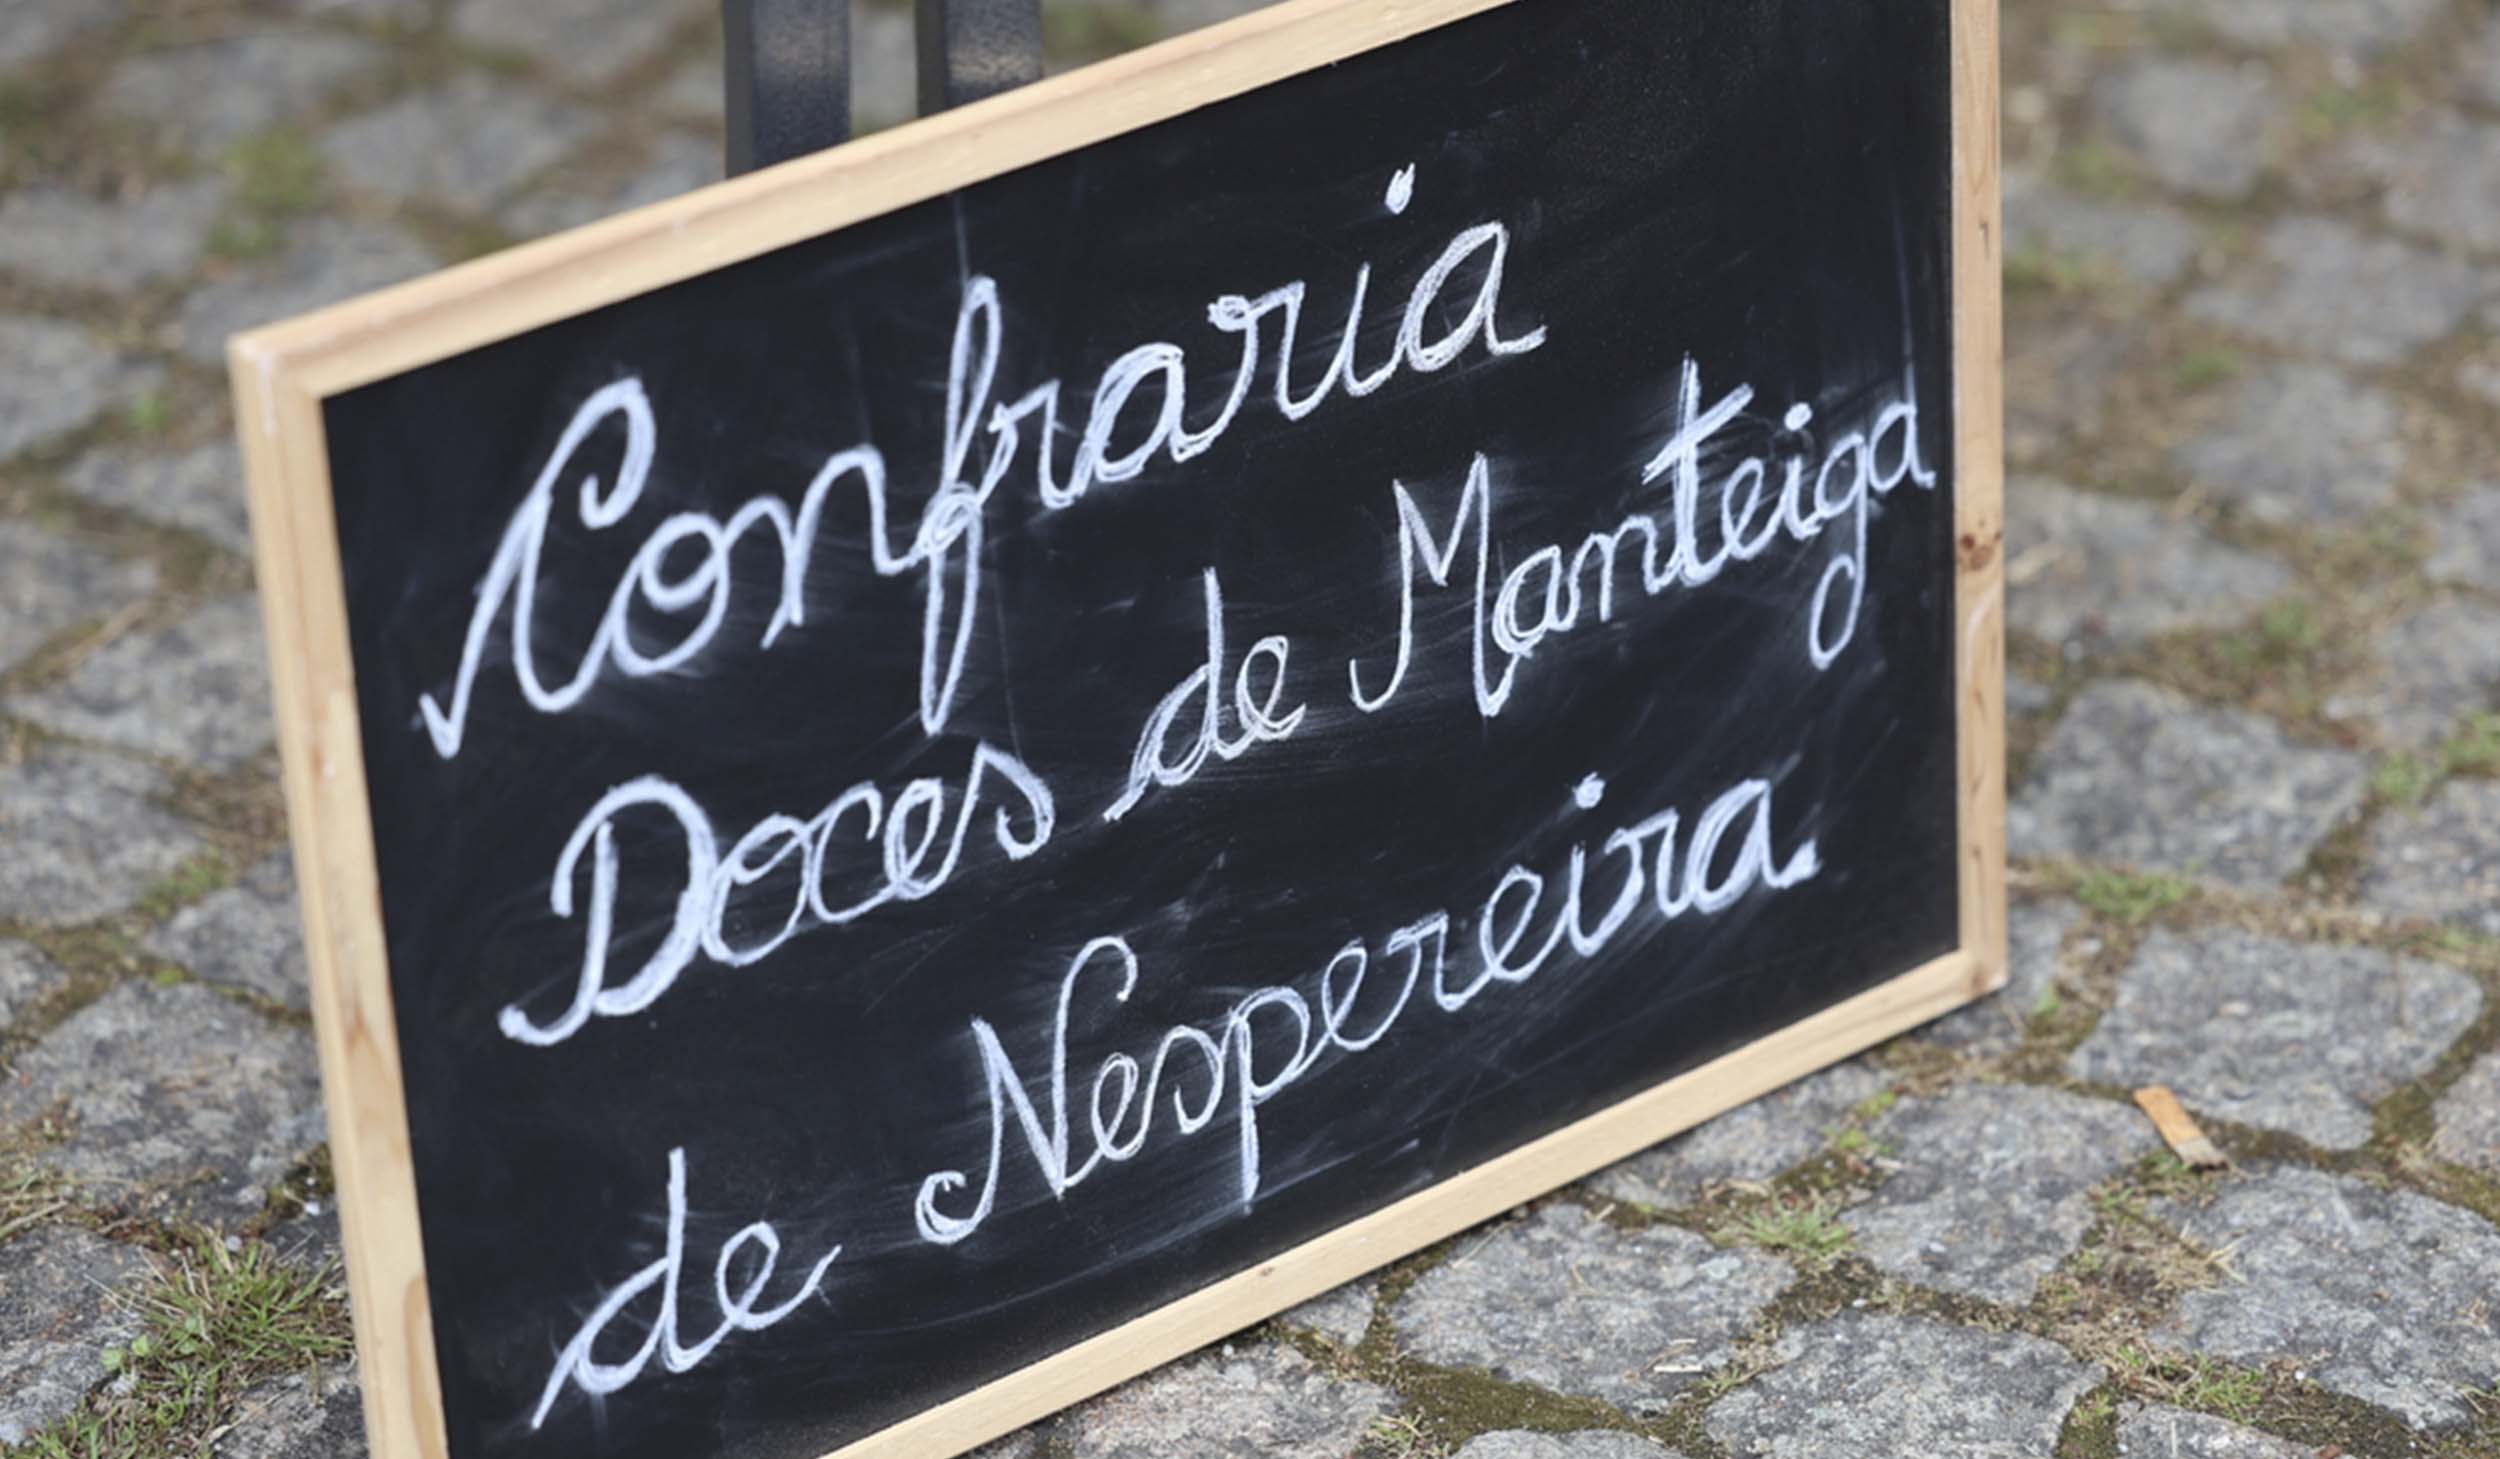 Confraria
Doces de Manteiga
de Nespereira.